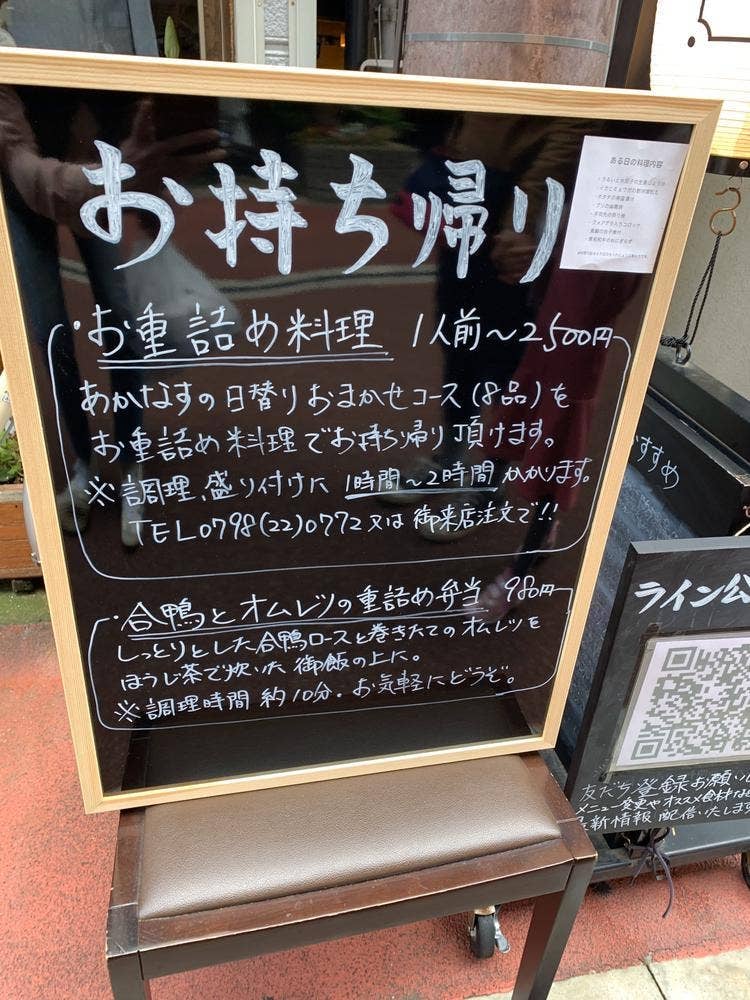 お持ち帰り
ある日の料理内容
・お重詰め料理 1人前〜2500円
あかなすの日替りおまかせコース(8品)を
お重詰め料理でお持ち帰り頂けます。
※調理、盛り付けに1時間〜2時間かかります。
TEL0798(22)0772又は御来店注文で!!
・合鴨とオムレツの重詰め弁当 980円
しっとりとした合鴨ロースと巻きたてのオムレツを
ほうじ茶で炊いた御飯の上に。
※調理時間 約10分・お気軽にどうぞ。
おすすめ
ライン公
友だち登録お願い
メニュー変更やオススメ食材など
最新情報配信いたします